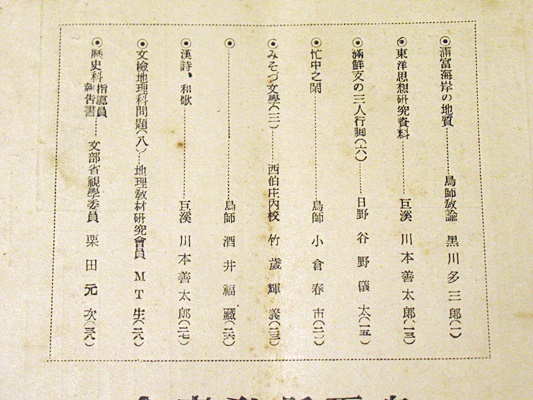 ◉浦富海岸の地質………鳥師教諭 黒川多三郎(一)
◉東洋思想研究資料………巨溪 川本善太郎(一三)
◉滿鮮支の三人行脚(六)……日野 谷野儀太(一五)
◉忙中之閑………鳥師 小倉春市(二一)
◉みそづ文學(三)………西伯庄内校 竹歳輝義(二三)
◉………鳥師 酒井福藏(二六)
◉漢詩、和歌………巨溪 川本善太郎(二七)
◉文檢地理科問題(八)…地理教材研究會員 MT生(二八)
◉歴史科指導員報告書………文部省視學委員 栗田元次(三八)